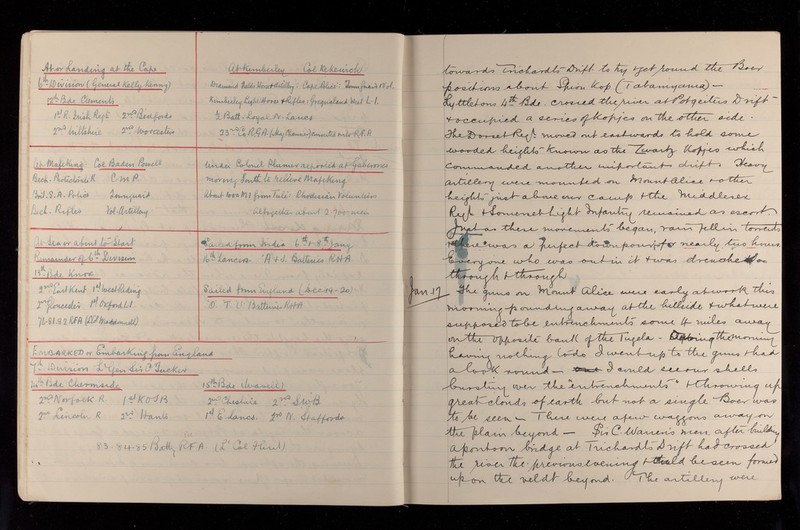 At or Landing at the Cape
6th Division (General Kelly Kenny)
12th Bde Clements
1st R. Irish Regt 2nd Bedfords
2nd Wiltshire 2nd Worcester
At Mafeking Col Baden Powell
Bech. Protectorate R C.M.R.
Brit. S. A. Police Town guard
Bech. Rifles Vol. Artillery
At Sea or about to Start
Remainder of 6th Division
13th Bde Knox
2nd East Kent 1st West Riding
2nd Gloucester 1st Oxford L.I.
76. 81. 82 RFA
EMBARKED or Embarking from England
7th Division Lt Gen Sir C Tucker
14th Bde Chermside
2nd Norfolk R. 1st KOSB
2nd Lincoln R 2nd Hants
At Kimberley Col Kekewich
Kimberley Light Horse & Rifles. Griqualand West L.I.
½ Batt. Loyal N. Lancs
under Colonel Plumer reported at Gaberones
moving South to relieve Mafeking
about 1000 M I from Tuli. Rhodesian Volunteers
altogether about 2,700 men
Sailed from India 6th & 8th Jany
16th Lancers. "A & J" Batteries R.H.A
Sailed from England
"O. T. U" Batteries RHA
15th Bde (Wavell)
2nd Cheshire 2nd S.W.B
1st E. Lancs. 2nd N. Staffords
83. 84. 85 Batty RFA.
towards Trichardts Drift to try & get round the Boer
positions about Spion Kop (Tabamyama) —
Lyttleton 4th Bde. crossed the river at Potgeiters Drift —
& occupied a series of Kopjes on the other side.
The Dorset Regt. moved out eastwards to hold some
wooded heights known as the Zwartz Kopjes which
commanded another important drift. Heavy
artillery were mounted on Mount Alice & other
heights just above our camp & the Middlesex
Regt & Somerset Light Infantry remained as escort
Just as these movements began, rain fell in torrents
was a perfect downpour for nearly two hours
Everyone who was out in it & was drenched
through & through
Jan. 17 The guns on Mount Alice were early at work this
morning pounding away at the hillside & what were
supposed to be entrenchments some 4 miles away
on the opposite bank of the Tugela. During the morning
having nothing to do I went up to the guns & had
a look round — I could see our shells
bursting over the "entrenchments" & throwing up
great clouds of earth but not a single Boer was
to be seen — There were a few waggons away on
the plain beyond — Sir C Warren's men, after building
a pontoon bridge at Trichardts Drift had crossed
the river the previous evening & could be seen formed
up on the veldt beyond. The artillery were